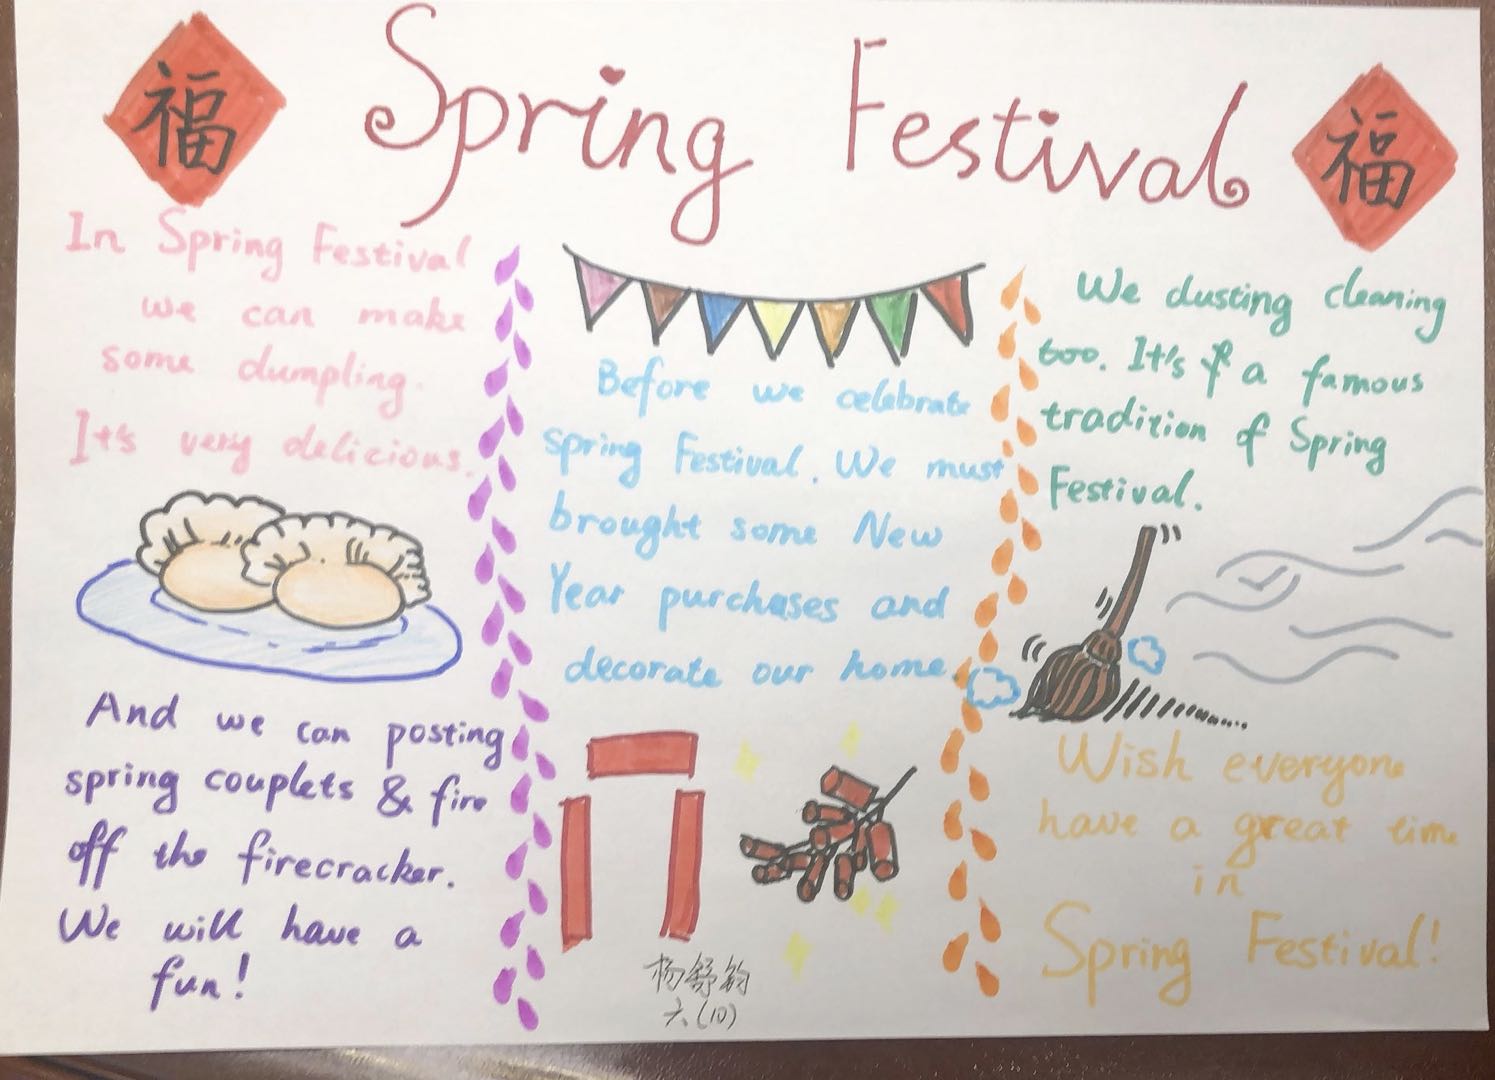 福
Spring Festival
福
In Spring Festival
we can make
some dumpling.
It's very delicious.
And we can posting
spring couplets & fire
off the firecracker.
We will have a
fun!
Before we celebrate
spring Festival. We must
brought some New
Year purchases and
decorate our home.
杨舒鈞
六(10)
We dusting cleaning
too. It's a famous
tradition of Spring
Festival.
Wish everyone
have a great time
in
Spring Festival!